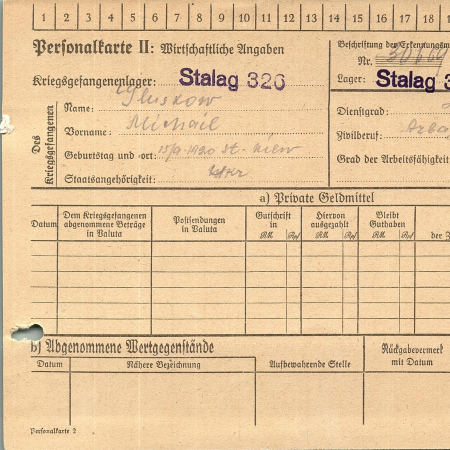 1 2 3 4 5 6 7 8 9 10 11 12 13 14 15 16 17 18
Personalkarte II: Wirtschaftliche Angaben
Kriegsgefangenenlager: Stalag 326
Des Kriegsgefangenen
Name:
Vorname: Michail
Geburtstag und -ort: 1920 Kiew
Staatsangehörigkeit: Ukr
Beschriftung der Erkennungsm
Nr.
Lager: Stalag 3
Dienstgrad:
Zivilberuf: Arba
Grad der Arbeitsfähigkeit
a) Private Geldmittel
Datum
Dem Kriegsgefangenen abgenommene Beträge in Valuta
Postsendungen in Valuta
Gutschrift in
RM. Rpf
Hiervon ausgezahlt
RM. Rpf
Bleibt Guthaben
RM. Rpf
der Z
b) Abgenommene Wertgegenstände
Datum
Nähere Bezeichnung
Aufbewahrende Stelle
Rückgabevermerk mit Datum
Personalkarte 2